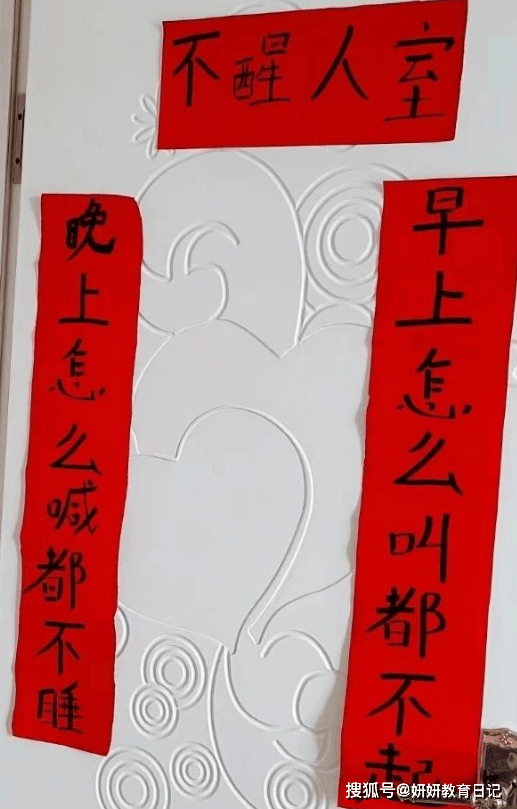 不醒人室
早上怎么叫都不起
晚上怎么喊都不睡
搜狐号@妍妍教育日记